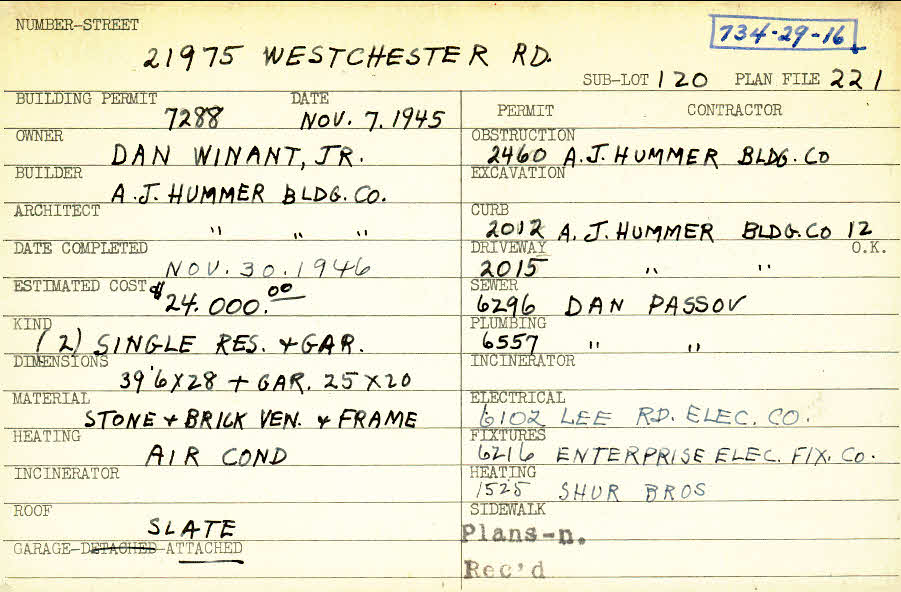 NUMBER-STREET
734-29-16
21975 WESTCHESTER RD.
SUB-LOT 120 PLAN FILE 221
BUILDING PERMIT DATE
7288 NOV. 7. 1945
OWNER
DAN WINANT, JR.
BUILDER
A.J. HUMMER BLDG. CO.
ARCHITECT
" " "
DATE COMPLETED
NOV. 30. 1946
ESTIMATED COST $24.000.00
KIND
(2) SINGLE RES. + GAR.
DIMENSIONS
39'6 X 28 + GAR. 25 X 20
MATERIAL
STONE + BRICK VEN. + FRAME
HEATING
AIR COND
INCINERATOR
ROOF
SLATE
GARAGE-DETACHED-ATTACHED
PERMIT CONTRACTOR
OBSTRUCTION
2460 A.J. HUMMER BLDG. CO
EXCAVATION
CURB
2012 A.J. HUMMER BLDG. CO 12
DRIVEWAY O.K.
2015 " "
SEWER
6296 DAN PASSOV
PLUMBING
6557 " "
INCINERATOR
ELECTRICAL
6102 LEE RD. ELEC. CO.
FIXTURES
6216 ENTERPRISE ELEC. FIX. CO.
HEATING
1525 SHUR BROS
SIDEWALK
Plans-n.
Rec'd